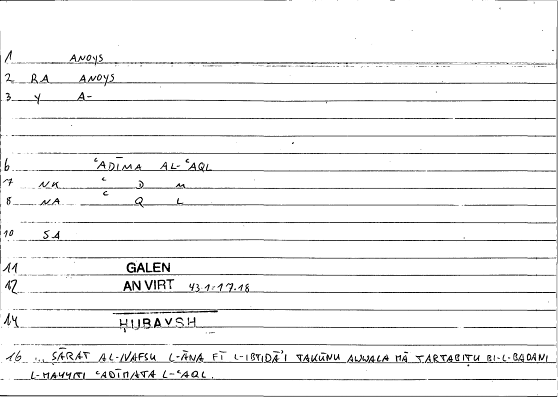 1 ANOYS
2 RA ANOYS
3 Y A-
6 ʿADĪMA AL-ʿAQL
7 NK ʿ D M
8 NA ʿ Q L
10 SA
11 GALEN
12 AN VIRT 43.1:17.18
14 HUBAYSH
16 ... ṢĀRAT AL-NAFSU L-ĀNA FĪ L-IBTIDĀʾI TAKŪNU AWWALA MĀ TARTABIṬU BI-L-BADANI
L-MAYYITI ʿADĪMATA L-ʿAQL.